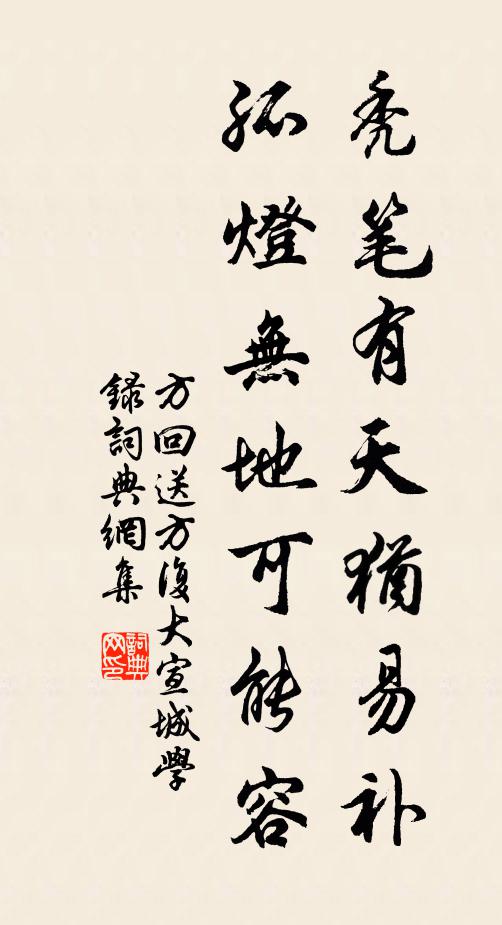 秃笔有天犹易补
孤燈無地可能容
方回送方復大宣城學
録詞典網集
詞典网印